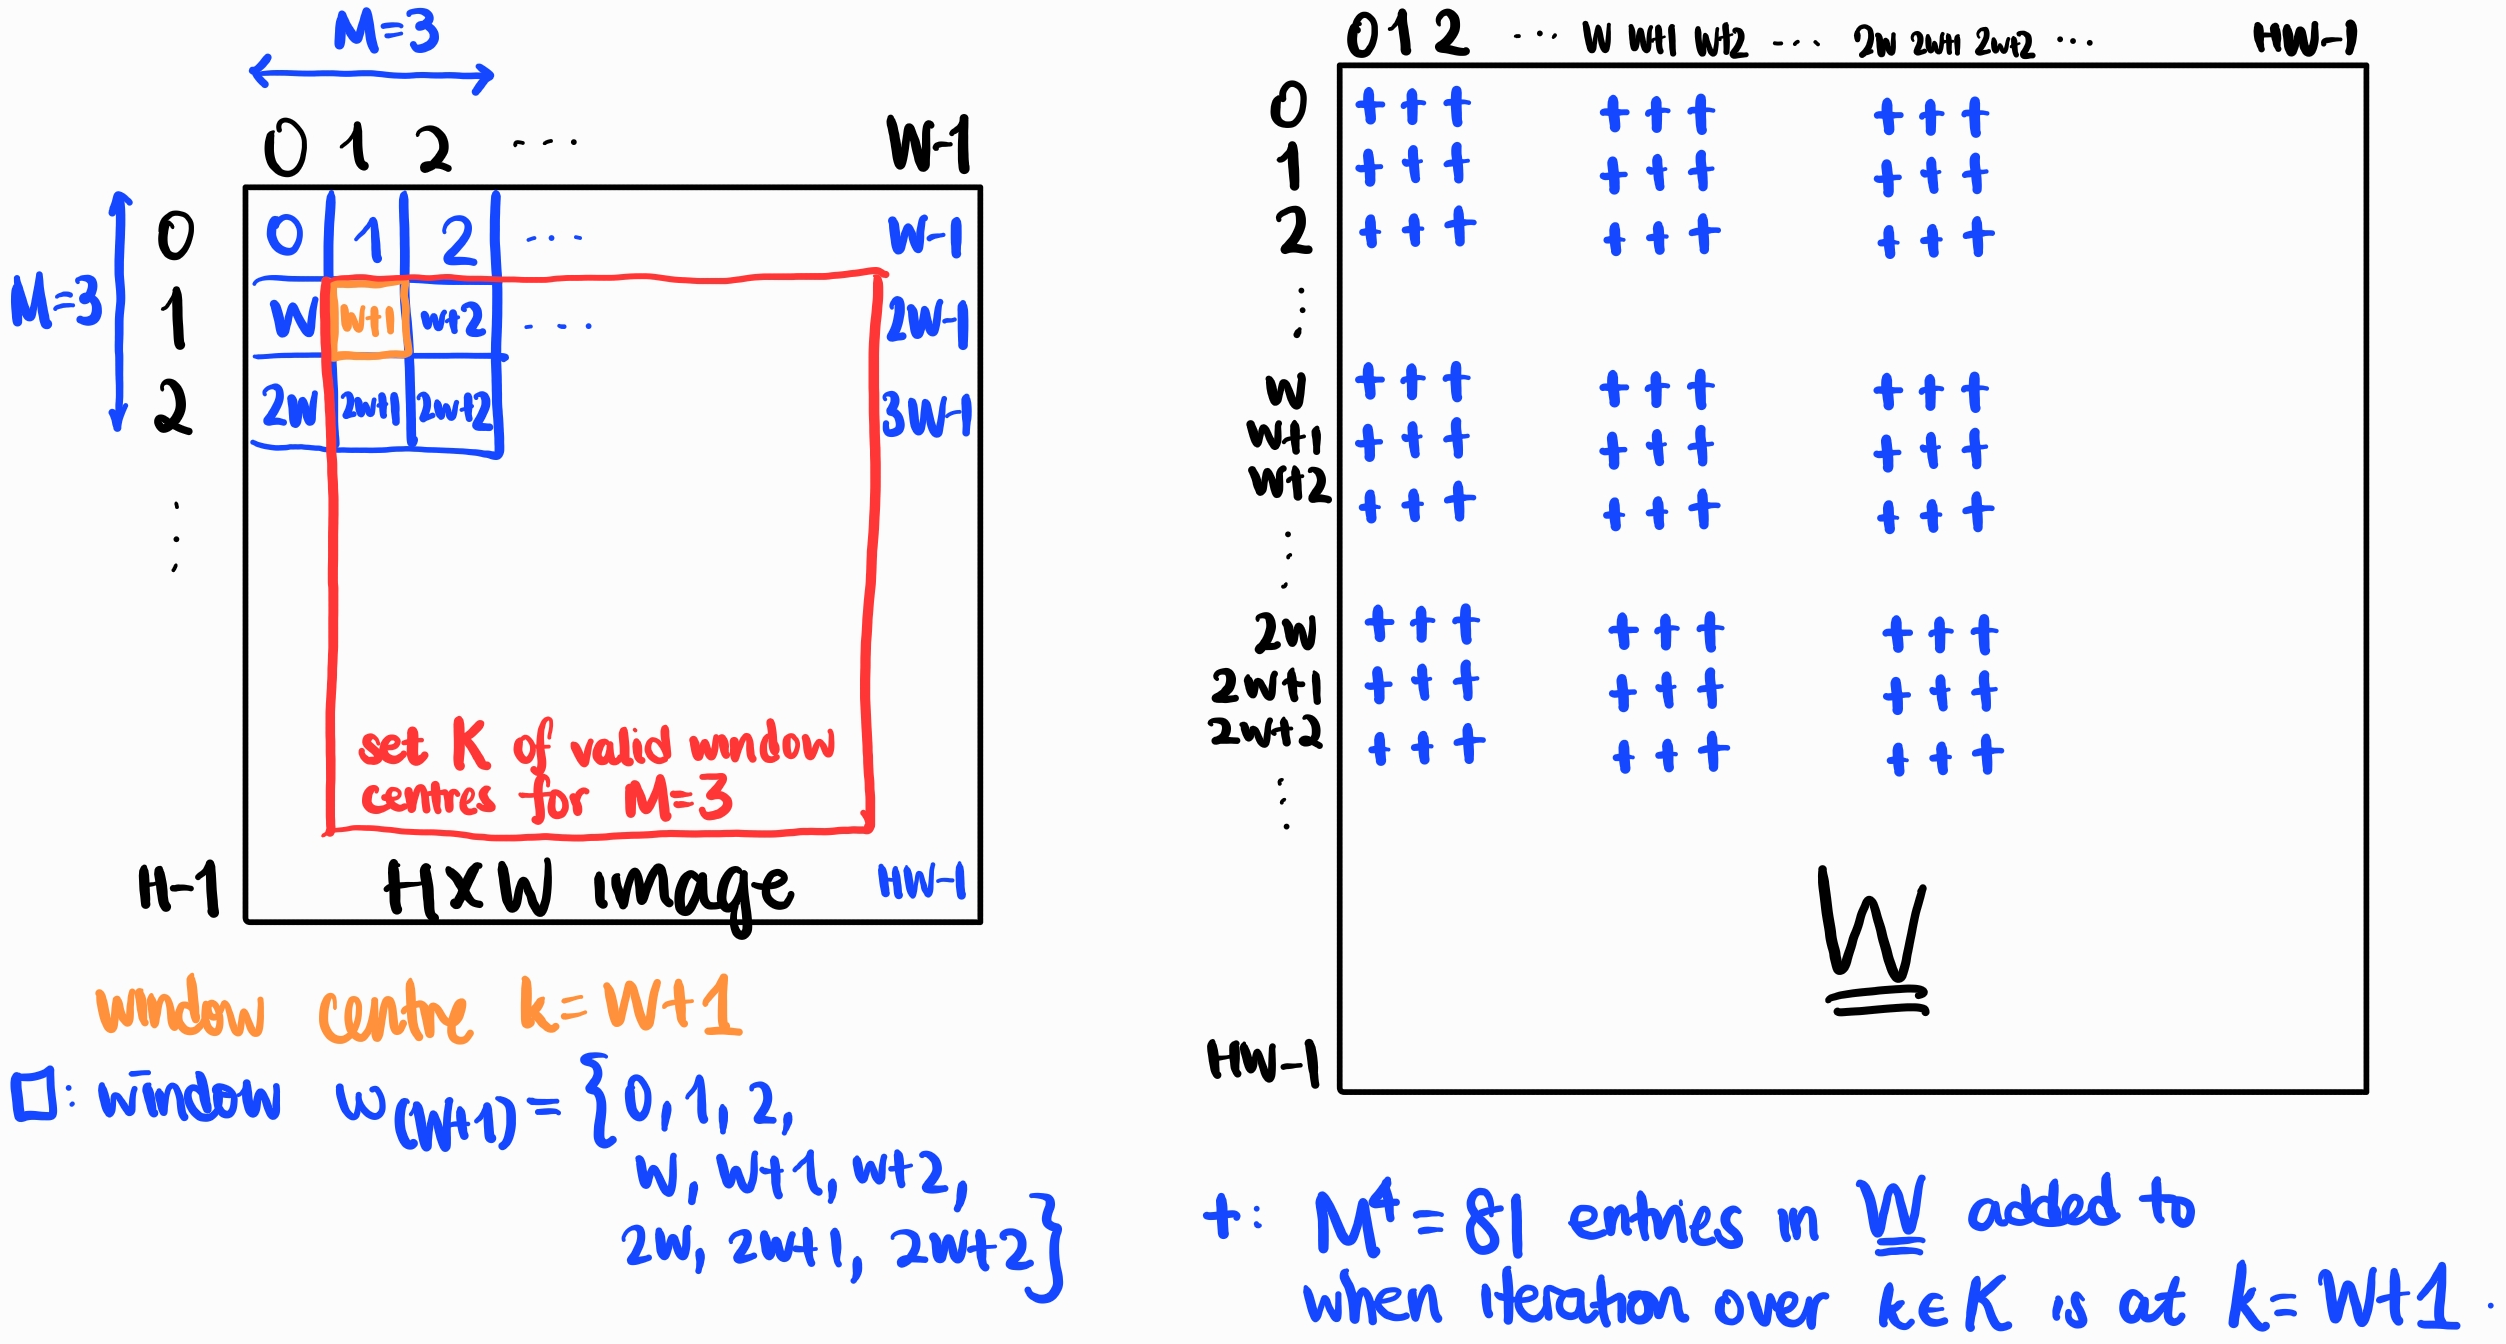 M=3
0 1 2 ... W-1
M=3
0 0 1 2 ... W-1
1 W W+1 W+2 ... 2W-1
2 2W 2W+1 2W+2 3W-1
⋮
set K of valid window
centers for M=3
H-1 HXW image HW-1
window centre k=W+1
□: window υ(W+1)={0,1,2,
W, W+1, W+2,
2W, 2W+1, 2W+2}
0 1 2 ... W W+1 W+2 ... 2W 2W+1 2W+2 ... HW-1
0 + + + + + + + + +
1 + + + + + + + + +
2 + + + + + + + + +
⋮
W + + + + + + + + +
W+1 + + + + + + + + +
W+2 + + + + + + + + +
⋮
2W + + + + + + + + +
2W+1 + + + + + + + + +
2W+2 + + + + + + + + +
⋮
W
HW-1
+: M⁴=81 entries in W added to
when iteration over k∈K is at k=W+1.